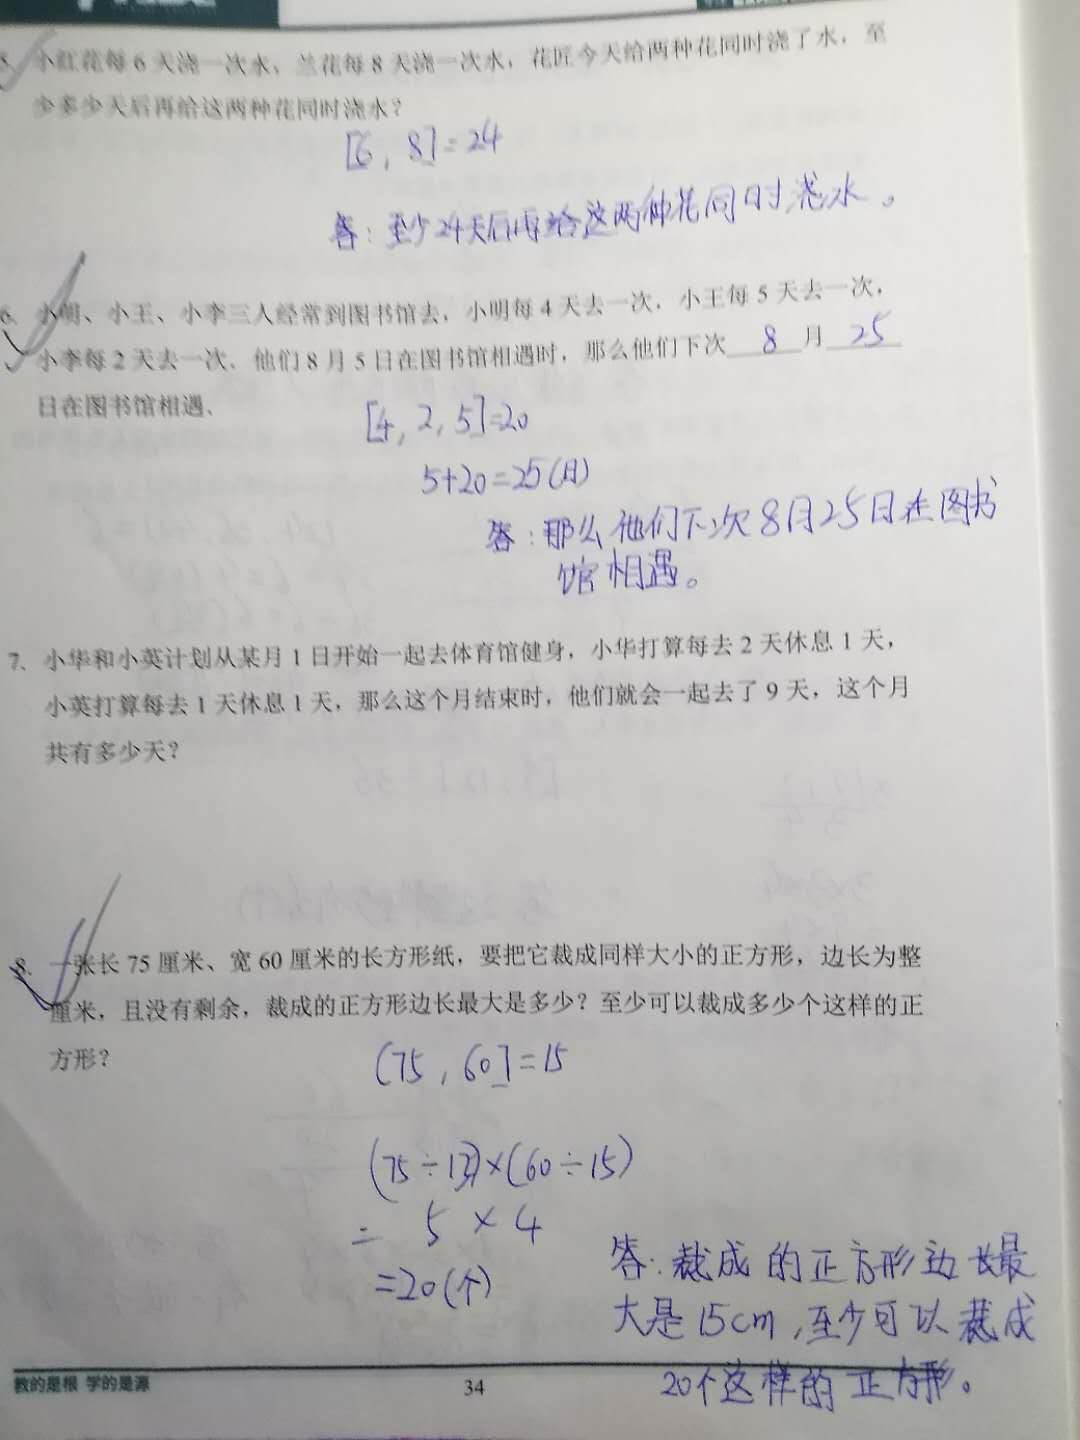 5、小红花每 6 天浇一次水，兰花每 8 天浇一次水，花匠今天给两种花同时浇了水，至
少多少天后再给这两种花同时浇水？
[6，8]=24
答：至少24天后再给这两种花同时浇水。
6、小明、小王、小李三人经常到图书馆去，小明每 4 天去一次，小王每 5 天去一次，
小李每 2 天去一次、他们 8 月 5 日在图书馆相遇时，那么他们下次 8 月 25
日在图书馆相遇、
[4，2，5]=20
5+20=25(日)
答：那么他们下次8月25日在图书
馆相遇。
7、小华和小英计划从某月 1 日开始一起去体育馆健身，小华打算每去 2 天休息 1 天，
小英打算每去 1 天休息 1 天，那么这个月结束时，他们就会一起去了 9 天，这个月
共有多少天？
8、一张长 75 厘米、宽 60 厘米的长方形纸，要把它裁成同样大小的正方形，边长为整
厘米，且没有剩余，裁成的正方形边长最大是多少？至少可以裁成多少个这样的正
方形？
(75，60]=15
(75÷15)×(60÷15)
= 5×4
=20(个)
答：裁成的正方形边长最
大是15cm，至少可以裁成
20个这样的正方形。
教的是根 学的是源
34